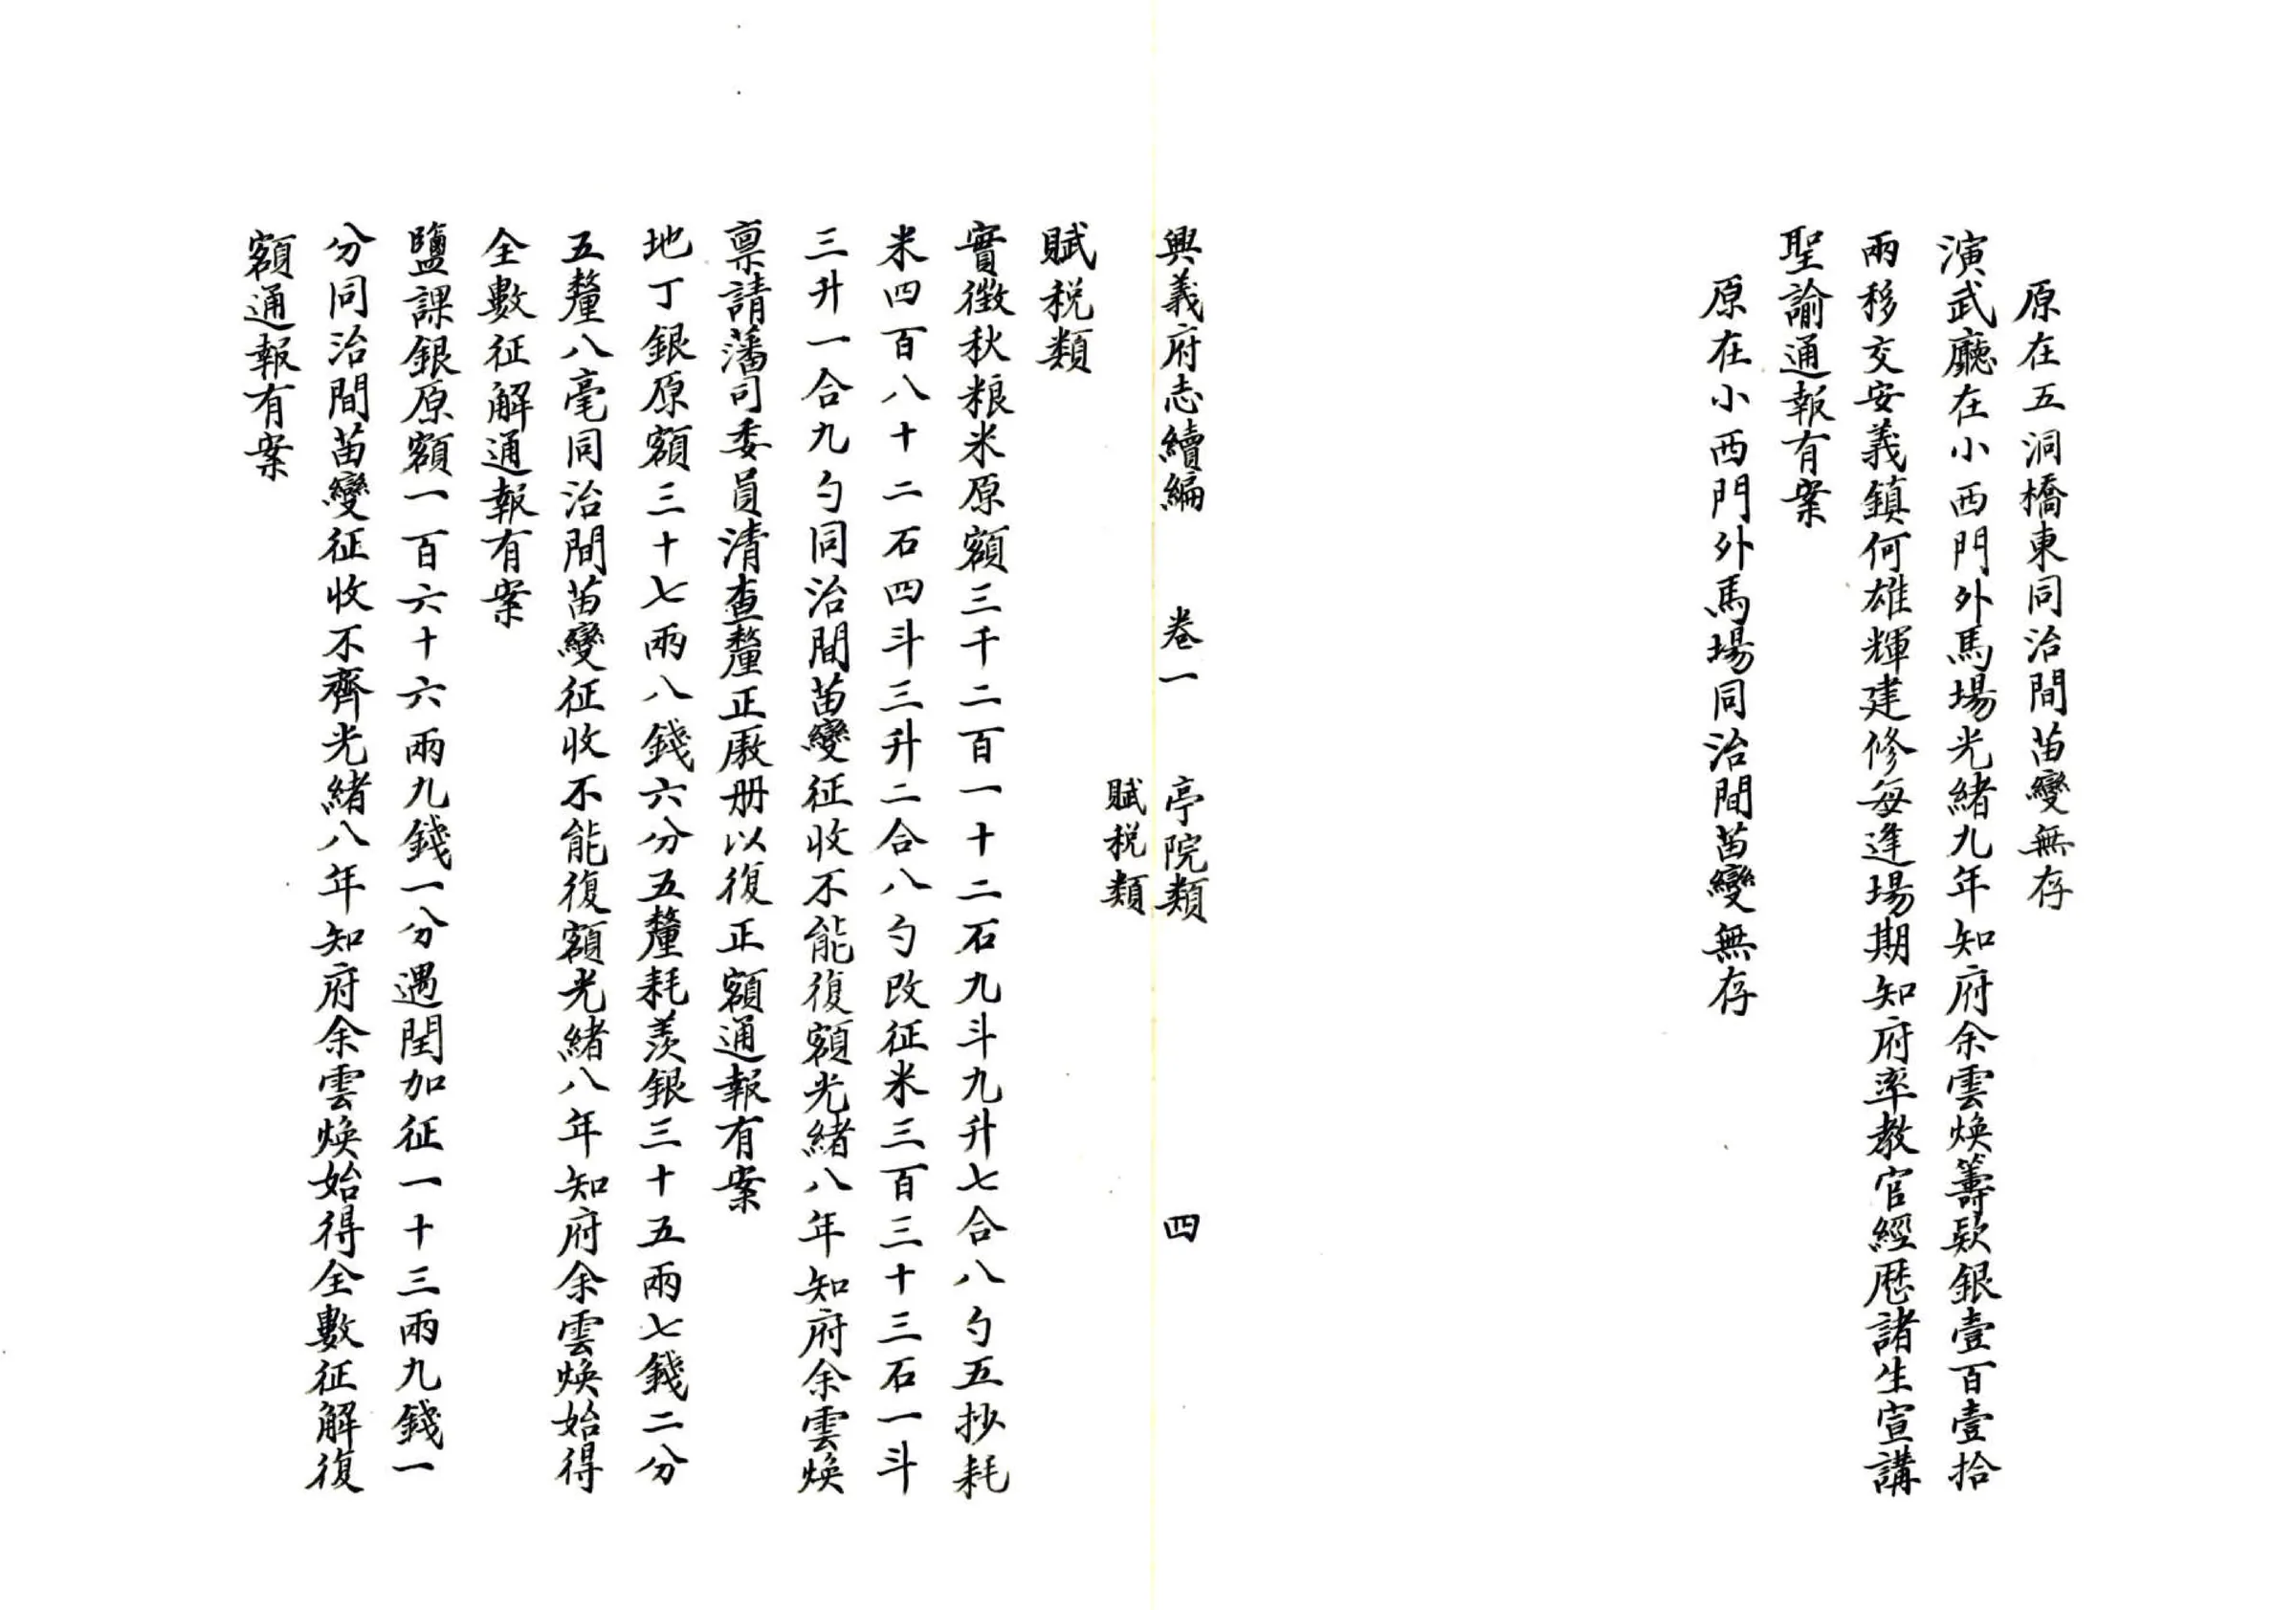 原在五洞橋東同治間苗變無存
演武廳在小西門外馬場光緒九年知府余雲煥籌欵銀壹百壹拾
兩移交安義鎮何雄輝建修每逢場期知府率教官經歷諸生宣講
聖諭通報有案
原在小西門外馬場同治間苗變無存
興義府志續編 卷一 亭院類 四
賦稅類
賦稅類
實徵秋粮米原額三千二百一十二石九斗九升七合八勺五抄耗
米四百八十二石四斗三升二合八勺改征米三百三十三石一斗
三升一合九勺同治間苗變征收不能復額光緒八年知府余雲煥
稟請藩司委員清查釐正廒册以復正額通報有案
地丁銀原額三十七兩八錢六分五釐耗羨銀三十五兩七錢二分
五釐八毫同治間苗變征收不能復額光緒八年知府余雲煥始得
全數征解通報有案
鹽課銀原額一百六十六兩九錢一分遇閏加征一十三兩九錢一
分同治間苗變征收不齊光緒八年知府余雲煥始得全數征解復
額通報有案